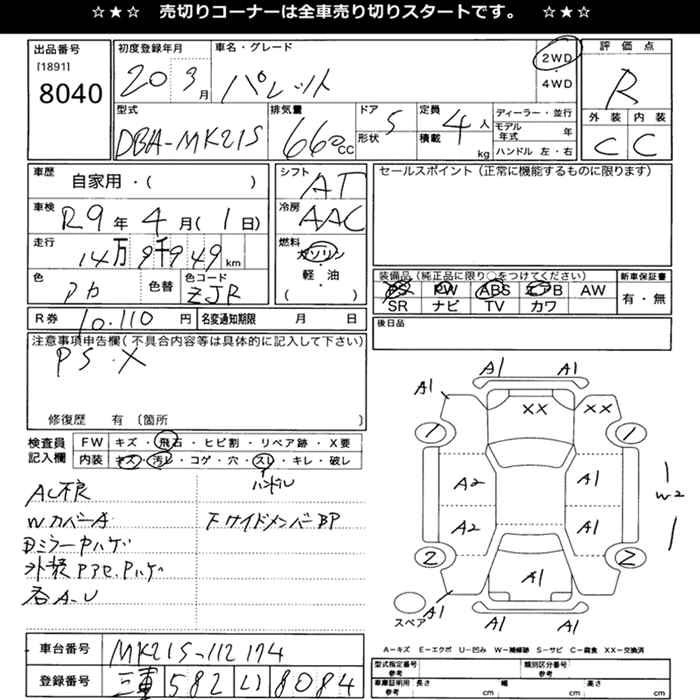 ☆★☆ 売切りコーナーは全車売り切りスタートです。 ☆★☆
出品番号
[1891]
8040
初度登録年月
20 3月
車名・グレード
パレット
2WD
・
4WD
評価点
R
外装 内装
C C
型式
DBA-MK21S
排気量
660cc
ドア
形状
5
定員
積載
4人
kg
ディーラー・並行
モデル
年式 年
ハンドル 左・右
車歴
自家用・( )
シフト
AT
セールスポイント(正常に機能するものに限ります)
車検
R9年4月(1日)
冷房
AAC
走行
14万9千949km
燃料
ガソリン
・
軽・油
( )
色
アカ
色替
色コード
ZJR
装備品(純正品に限り○をつけてください)
PS PW ABS エアB AW
SR ナビ TV カワ
新車保証書
有・無
R券 10,110円
名変通知期限 月 日
後日品
注意事項申告欄(不具合内容等は具体的に記入して下さい)
PS・X
修復歴 有〔箇所 〕
検査員
記入欄
FW キズ・飛石・ヒビ割・リペア跡・X要
内装 キズ・汚レ・コゲ・穴・スレ・キレ・破レ
ハンドル
AC不良
Wカバー A
Fサイドメンバー BP
DミラーPハゲ
外装Pアセ,Pハゲ
各A-U
A1 A1 A1
XX XX
1 1
A2 A1
A2 A1
1
W2
1
2 2
A1
A1 A1 A1
スペア
A-キズ E-エクボ U-凹み W-補修跡 S-サビ C-腐食 XX-交換済
車台番号 MK21S-112174
登録番号 三重 582 い 8084
型式指定番号
参考
類別区分番号
参考
車庫証明用
参考
長さ cm 幅 cm 高さ cm